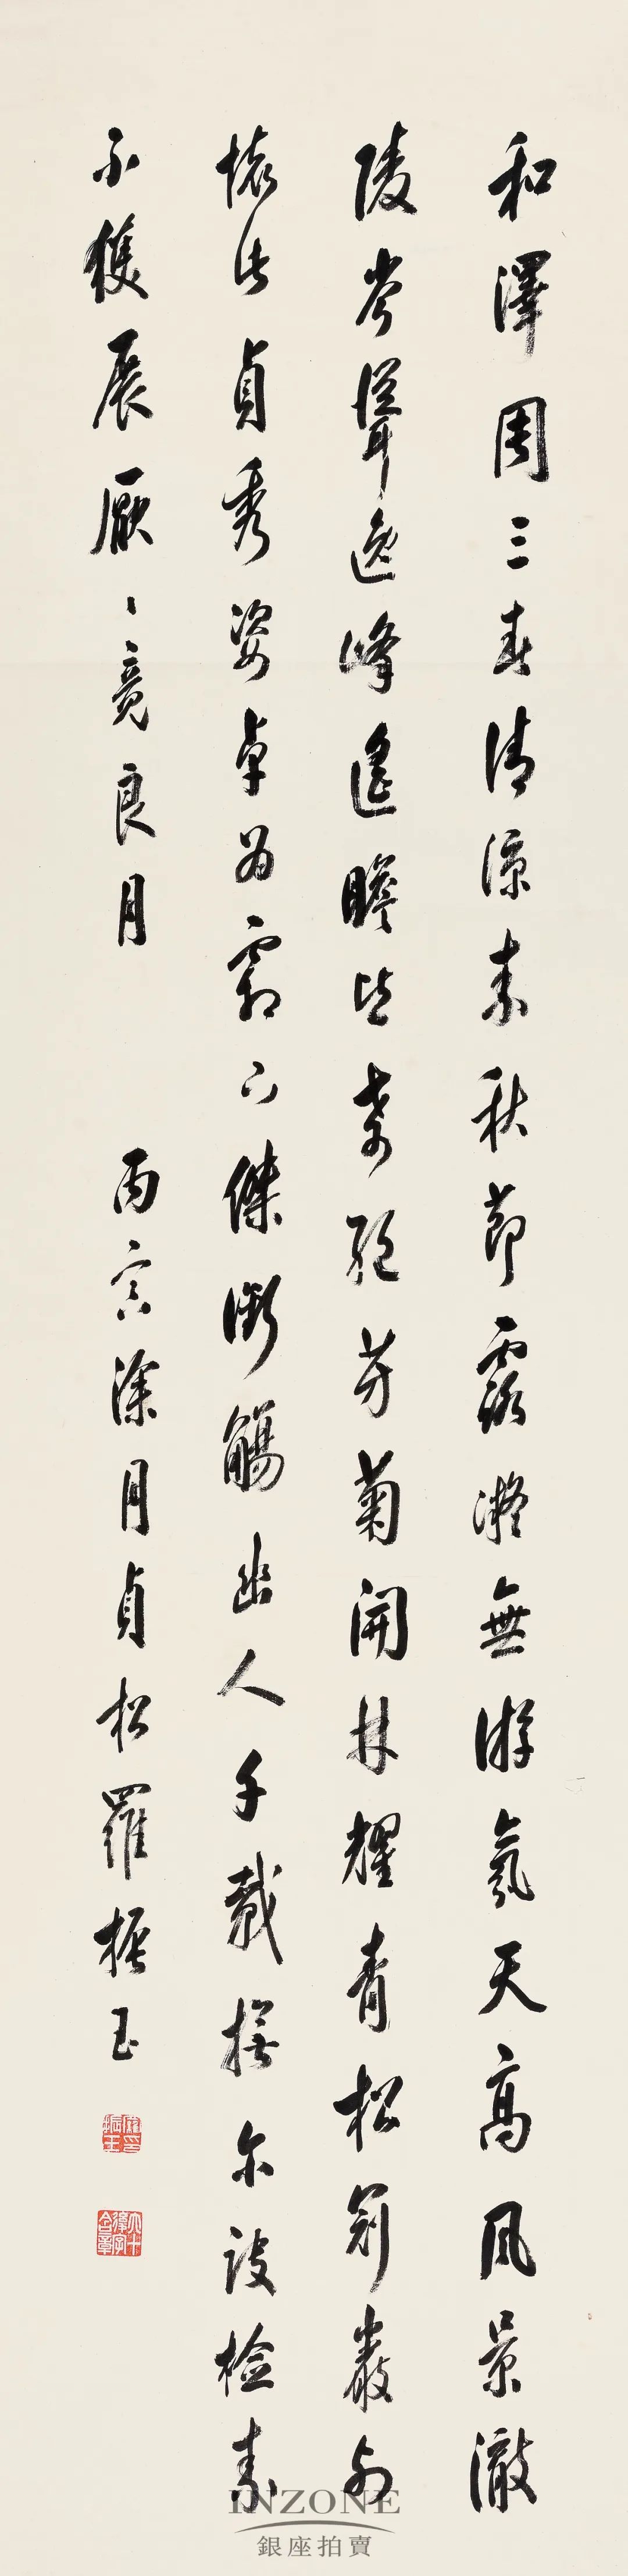 和澤周三春清涼素秋節露凝無游氛天高風景澈
陵岑聳逸峰遙瞻皆奇絕芳菊開林耀青松冠巖列
懷此貞秀姿卓為霜下傑銜觴幽人千載撫尔訣檢素
不獲展厭〻竟良月
丙寅涂月貞松羅振玉
INZONE
銀座拍賣